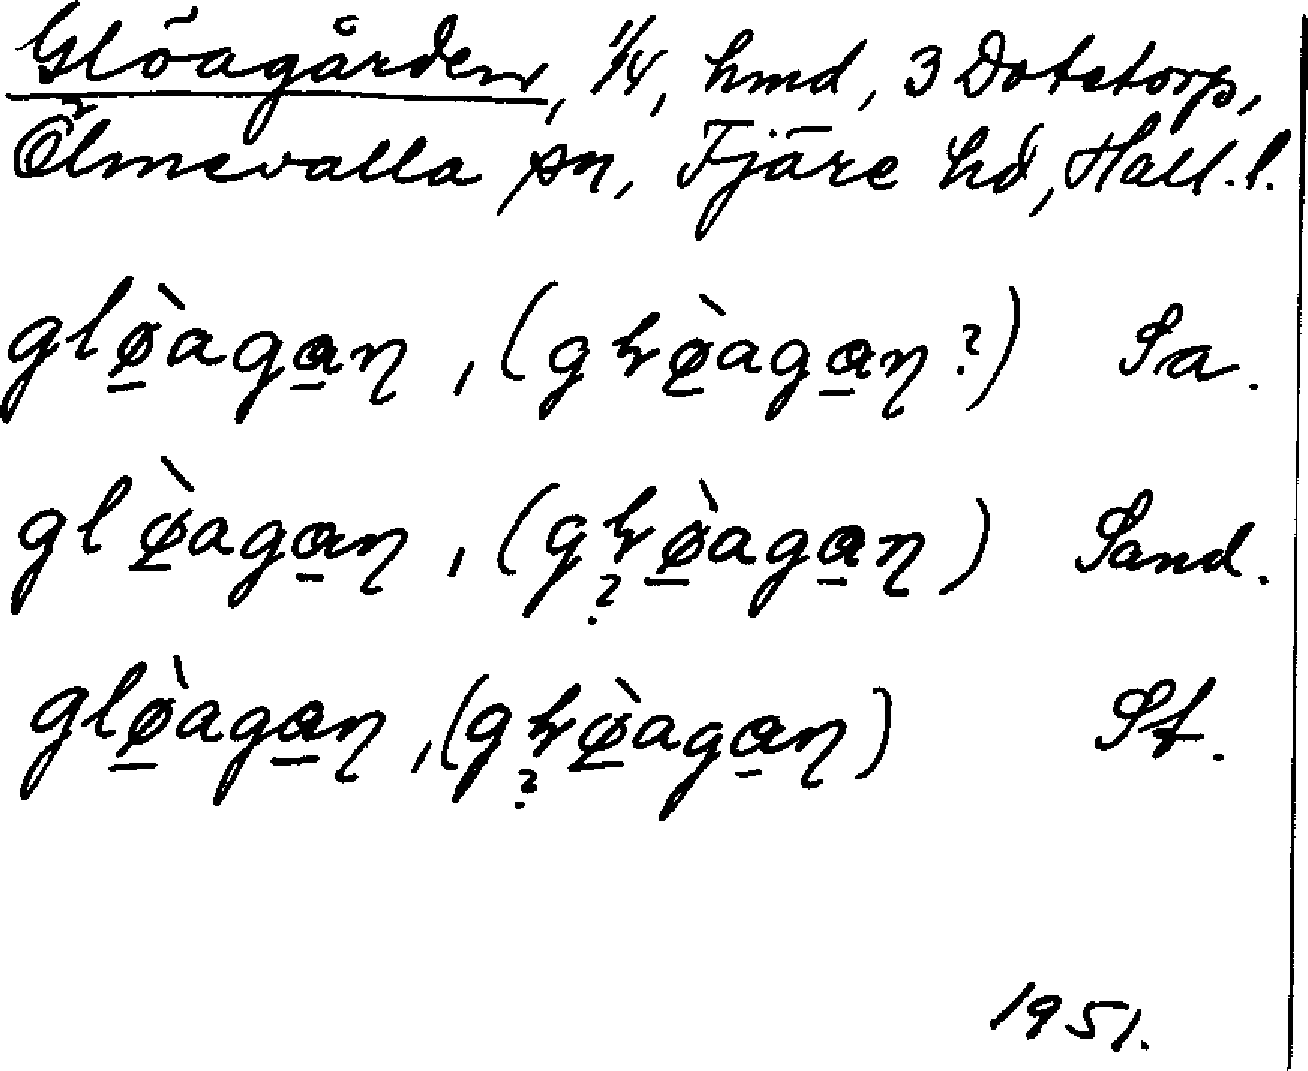 Glöagården, 1/4, hmd, 3 Dotetorp,
Ölmevalla sn, Fjäre hd, Hall. l.
glø̱̀aga̱ɳ, (gɽø̱̀aga̱ɳ?) Sa.
glø̱̀aga̱ɳ, (gɽø̱̀aga̱ɳ) Sand.
?
glø̱̀aga̱ɳ, (gɽø̱̀aga̱ɳ) St.
?
1951.